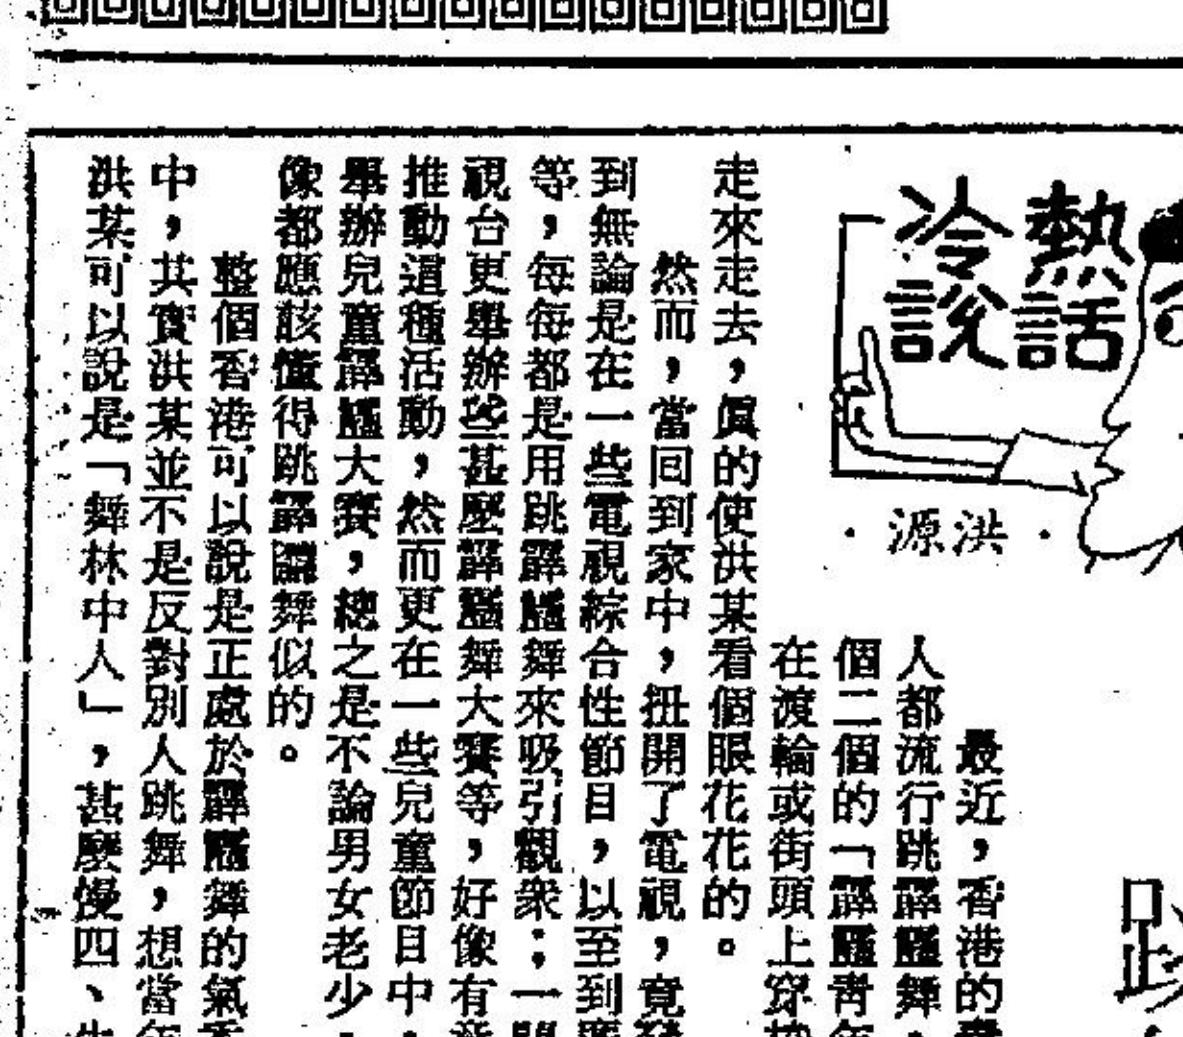 熱話
冷說
・洪源・
最近,香港的
人都流行跳霹靂舞,
個二個的「霹靂青年
在渡輪或街頭上穿
走來走去,眞的使洪某看個眼花花的。
然而,當回到家中,扭開了電視,竟發
到無論是在一些電視綜合性節目,以至到
等,每每都是用跳霹靂舞來吸引觀衆;一間
視台更舉辦些甚麼霹靂舞大賽等,好像有
推動這種活動,然而更在一些兒童節目中,
舉辦兒童霹靂大賽,總之是不論男女老少,
像都應該懂得跳霹靂舞似的。
整個香港可以說是正處於霹靂舞的氣
中,其實洪某並不是反對別人跳舞,想當年
洪某可以說是「舞林中人」,甚麼慢四、